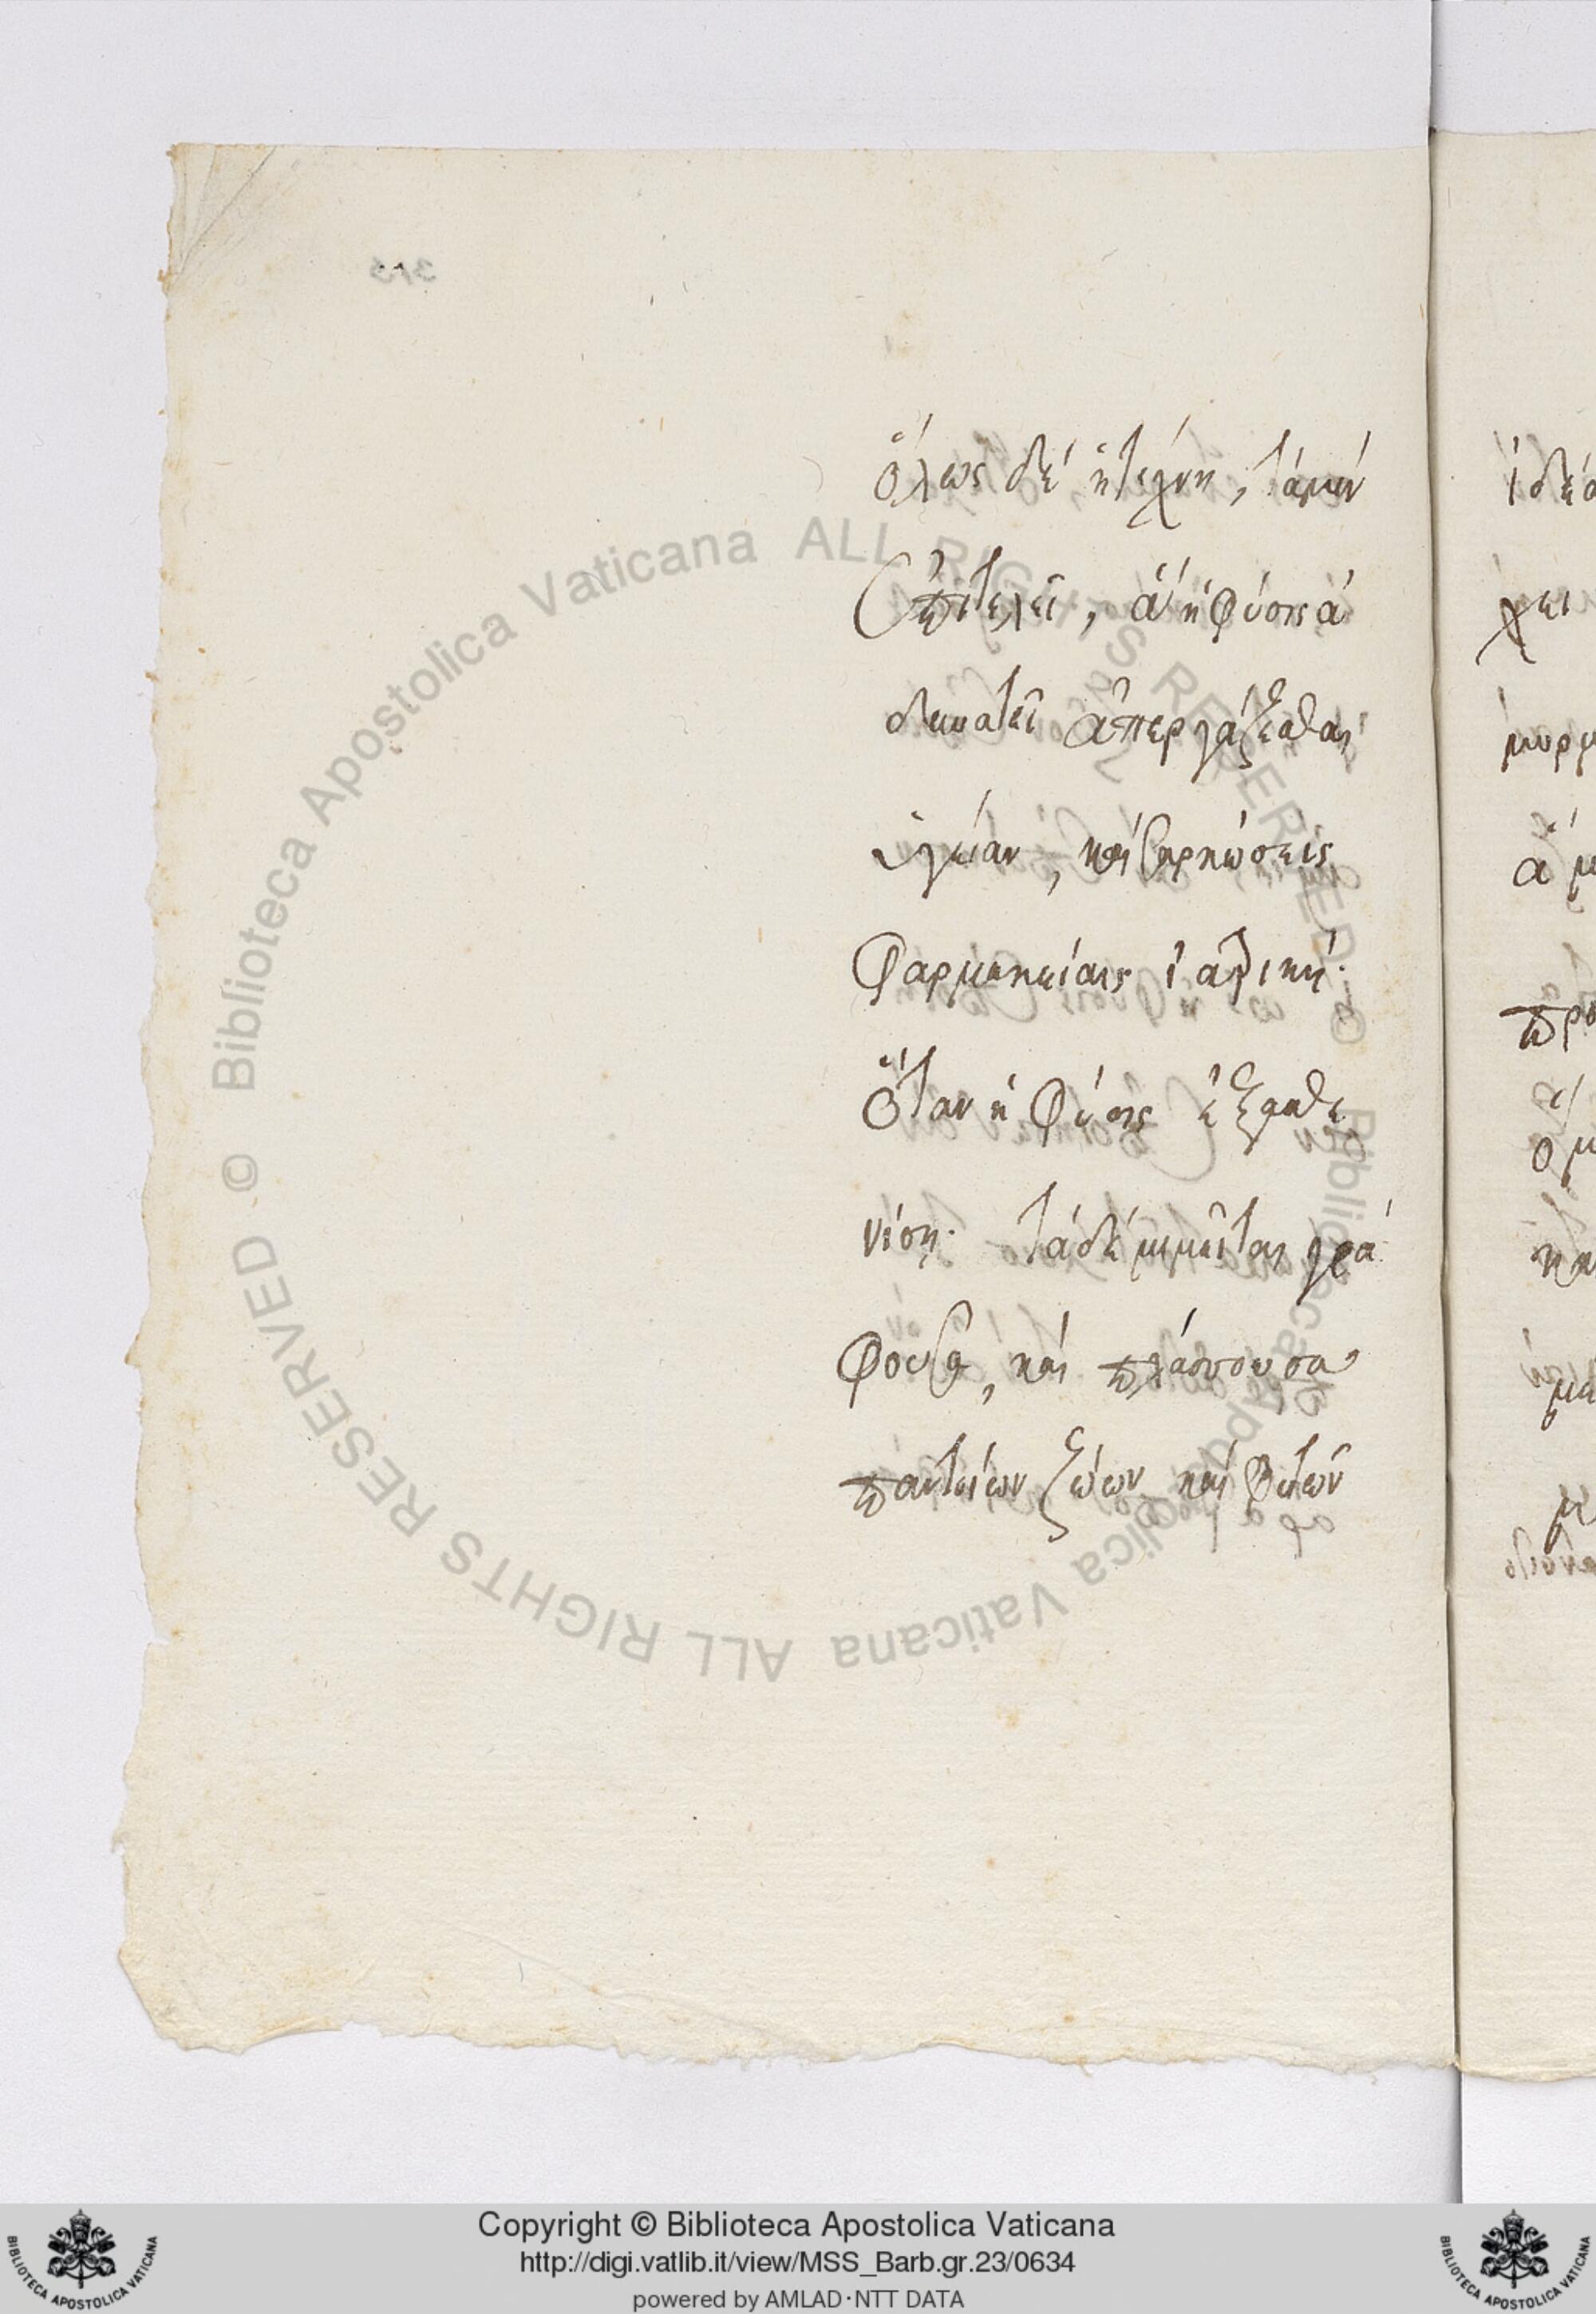 ὅλως δὲ ἡ τέχνη, τὰ μὲν
ἐπιτελεῖ, ἃ ἡ φύσις ἀ
δυνατεῖ ἀπεργάζεσθαι
ὑγείαν, καὶ σαρκώσεις
φαρμακείαις ἰατρικὴ·
ὅταν ἡ φύσις ἐξασθε
νίση· τὰ δὲ μιμεῖται γρά
φουσα, καὶ πλάσσουσα
παντοίων ζώων καὶ φυτῶν
© Biblioteca Apostolica Vaticana ALL RIGHTS RESERVED © Biblioteca Apostolica Vaticana ALL RIGHTS RESERVED
Copyright © Biblioteca Apostolica Vaticana
http://digi.vatlib.it/view/MSS_Barb.gr.23/0634
powered by AMLAD·NTT DATA
BIBLIOTECA APOSTOLICA VATICANA
BIBLIOTECA APOSTOLICA VATICANA